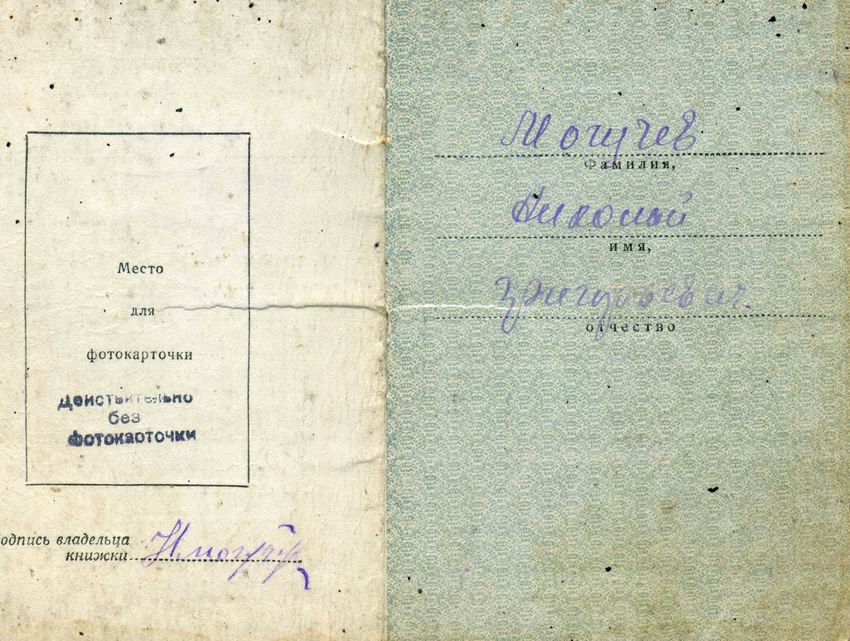 Место
для
фотокарточки
Действительно
без
фотокарточки
одпись владельца
книжки
Могучев
Фамилия,
Николай
имя,
отчество